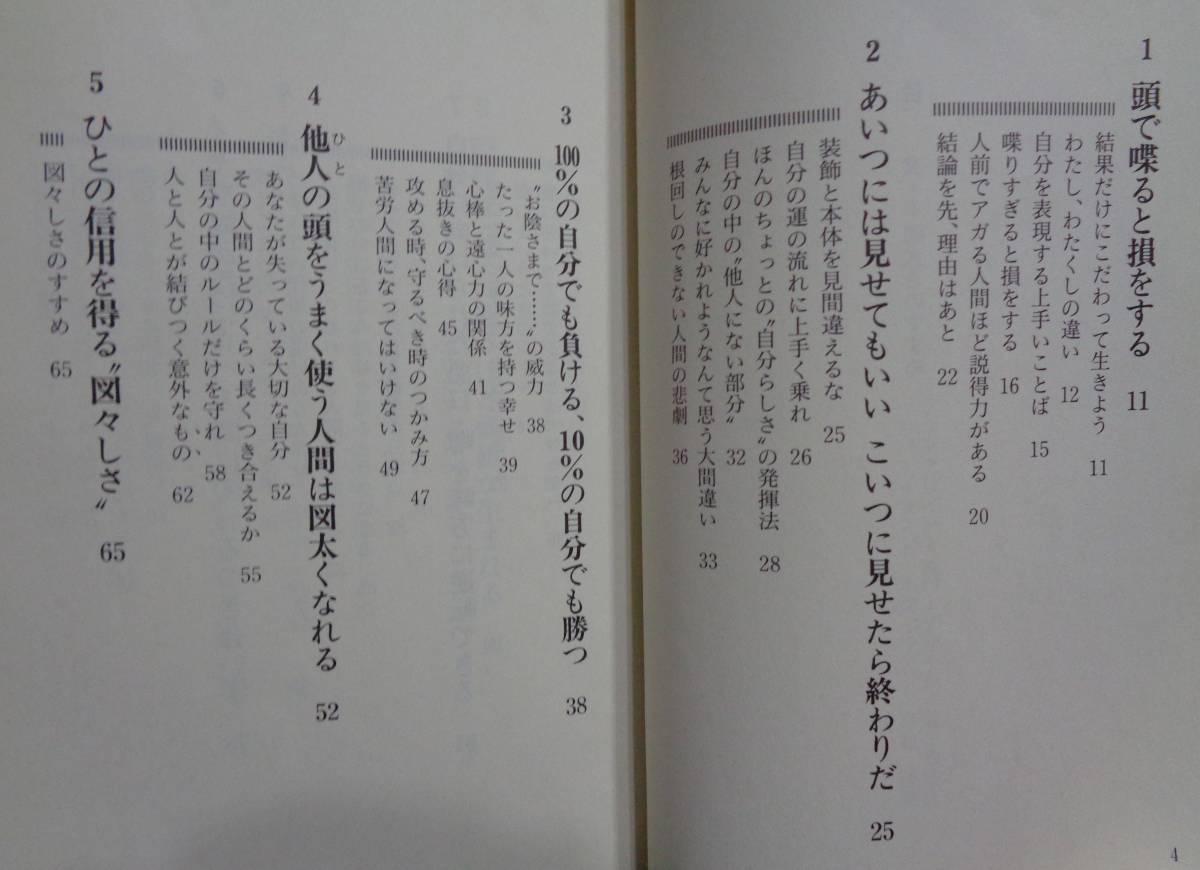 1 頭で喋ると損をする 11
結果だけにこだわって生きよう 11
わたし、わたくしの違い 12
自分を表現する上手いことば 15
喋りすぎると損をする 16
人前でアガる人間ほど説得力がある 20
結論を先、理由はあと 22
2 あいつには見せてもいい こいつに見せたら終わりだ 25
装飾と本体を見間違えるな 25
自分の運の流れに上手く乗れ 26
ほんのちょっとの〝自分らしさ〟の発揮法 28
自分の中の〝他人にない部分〟 32
みんなに好かれようなんて思う大間違い 33
根回しのできない人間の悲劇 36
4
3 100%の自分でも負ける、10%の自分でも勝つ 38
〝お陰さまで……〟の威力 38
たった一人の味方を持つ幸せ 39
心棒と遠心力の関係 41
息抜きの心得 45
攻める時、守るべき時のつかみ方 47
苦労人間になってはいけない 49
4 他人の頭をうまく使う人間は図太くなれる 52
ひと
あなたが失っている大切な自分 52
その人間とどのくらい長くつき合えるか 55
自分の中のルールだけを守れ 58
人と人とが結びつく意外なもの 62
5 ひとの信用を得る〝図々しさ〟 65
図々しさのすすめ 65